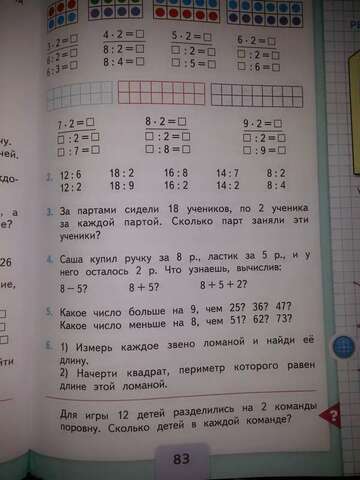 3·2=□ 4·2=□ 5·2=□ 6·2=□
6:2=□ 8:2=□ □:2=□ □:2=□
6:3=□ 8:4=□ □:5=□ □:6=□
7·2=□ 8·2=□ 9·2=□
□:2=□ □:2=□ □:2=□
□:7=□ □:8=□ □:9=□
2. 12:6 18:2 16:8 14:7 8:2
12:2 18:9 16:2 14:2 8:4
3. За партами сидели 18 учеников, по 2 ученика
за каждой партой. Сколько парт заняли эти
ученики?
4. Саша купил ручку за 8 р., ластик за 5 р., и у
него осталось 2 р. Что узнаешь, вычислив:
8−5? 8+5? 8+5+2?
5. Какое число больше на 9, чем 25? 36? 47?
Какое число меньше на 8, чем 51? 62? 73?
6. 1) Измерь каждое звено ломаной и найди её
длину.
2) Начерти квадрат, периметр которого равен
длине этой ломаной.
Для игры 12 детей разделились на 2 команды
поровну. Сколько детей в каждой команде?
?
83